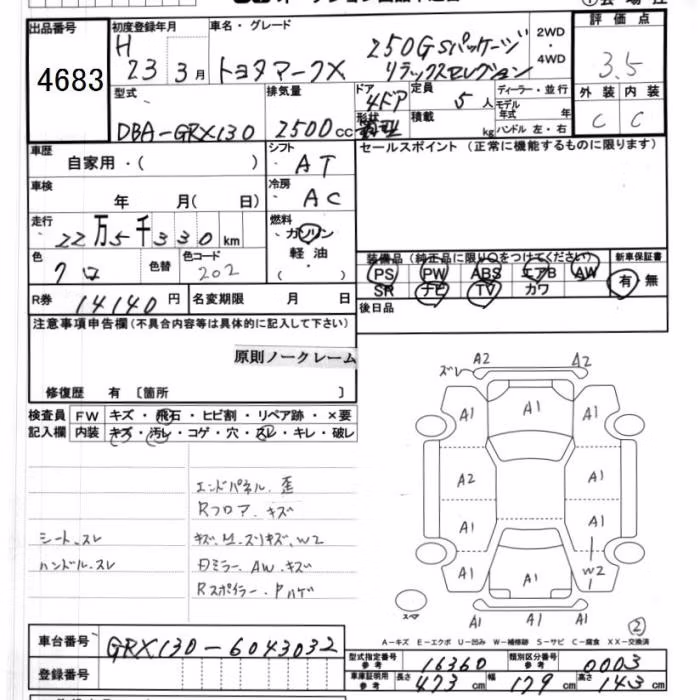 出品番号
4683
初度登録年月
H
23 3月
車名・グレード
トヨタマークX
250G Sパッケージ
リラックスセレクション
2WD
・
4WD
評価点
3.5
外装 内装
C C
型式
DBA-GRX130
排気量
2500cc
ドア
4ドア
形状
定員
5人
積載
kg
ディーラー・並行
モデル
年式 年
ハンドル 左・右
車歴
自家用・( )
シフト
AT
車検
年 月( 日)
冷房
AC
走行
22万5千330km
燃料
ガソリン
軽油
( )
色
クロ
色替
色コード
202
R券
14140円
名変期限 月 日
セールスポイント(正常に機能するものに限ります)
装備品(純正品に限り○をつけてください)
PS PW ABS エアB AW
SR ナビ TV カワ
新車保証書
有・無
後日品
注意事項申告欄(不具合内容等は具体的に記入して下さい)
原則ノークレーム
修復歴 有 〔箇所 〕
検査員
記入欄
FW キズ・飛石・ヒビ割・リペア跡・×要
内装 キズ・汚レ・コゲ・穴・スレ・キレ・破レ
エンドパネル. 歪
Rフロア. キズ
シート. スレ
キズ. スリキズ. W2
ハンドル. スレ
ミラー. AW. キズ
Rスポイラー. Pハゲ
A2 A2
ズレ
A1 A1 A1
A2 A1
A1 A1
A1 A1 W2
A1 A1
スペア
②
A-キズ E-エクボ U-凹み W-補修跡 S-サビ C-腐食 XX-交換済
車台番号
GRX130-6043032
登録番号
型式指定番号
参考
16360
類別区分番号
参考
0003
車庫証明用
参考
長さ 473cm 幅 179cm 高さ 143cm